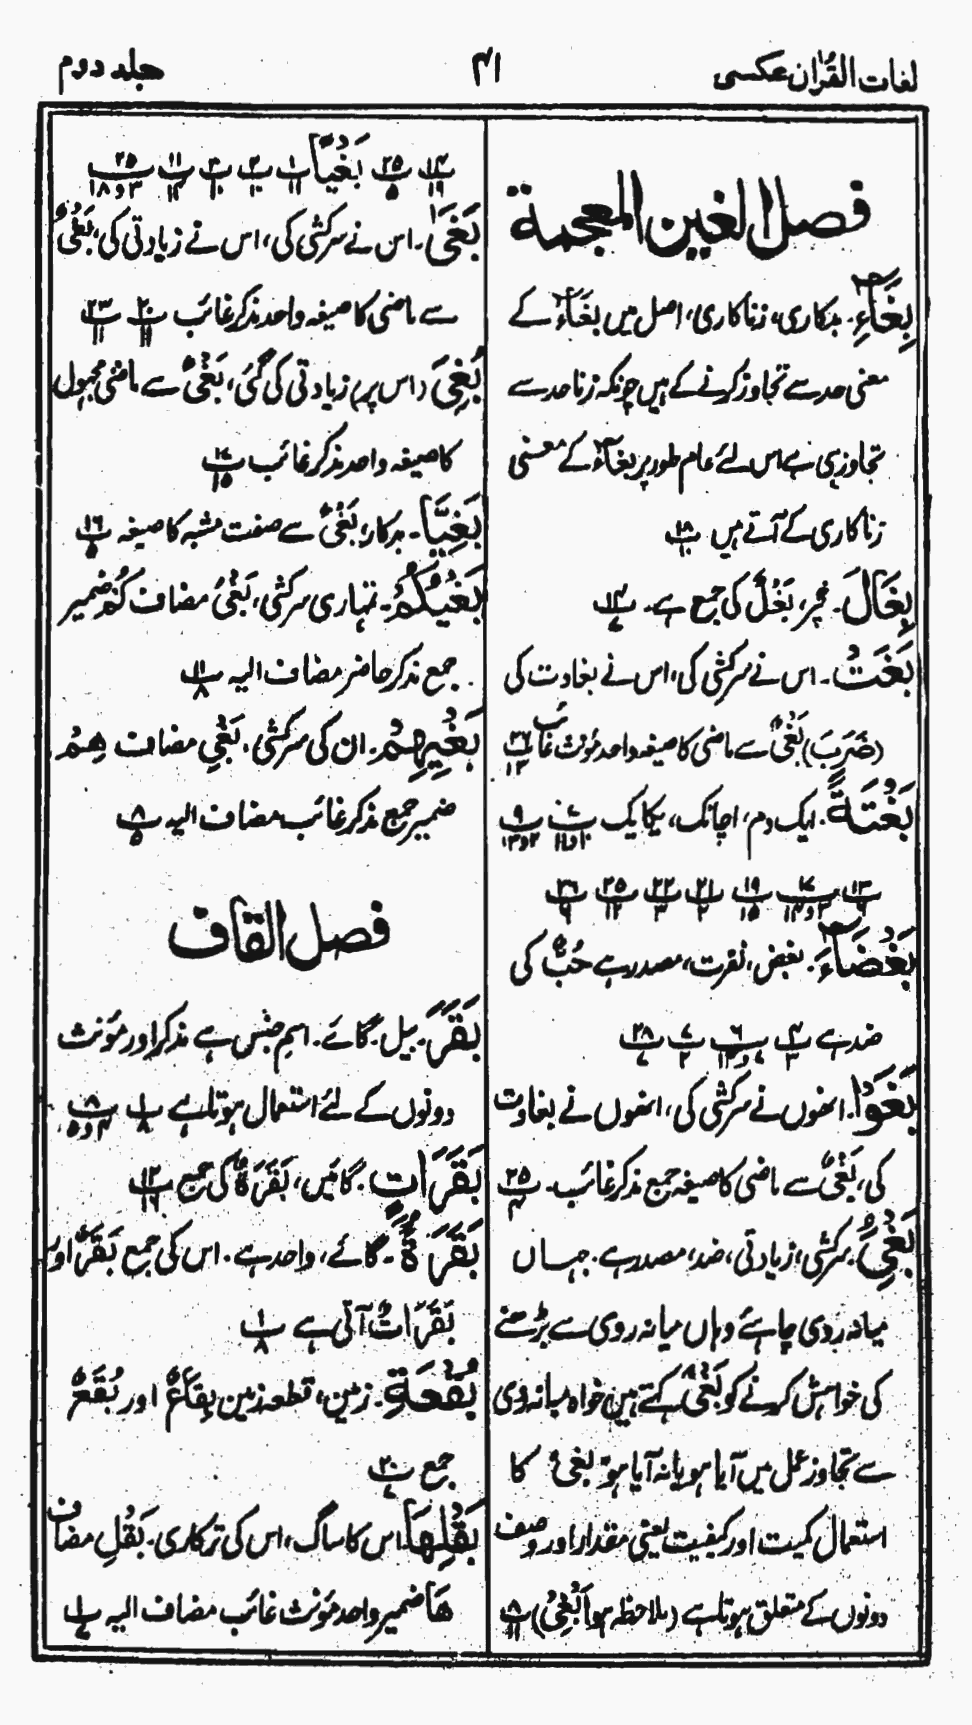 لغات القرآن عکسی
۴۱
جلد دوم
فصل الغین المعجمة
بِغَآءِ۔ بدکاری، زناکاری، اصل میں بِغَآءٌ کے
معنی حد سے تجاوز کرنے کے ہیں چونکہ زنا حد سے
تجاوز ہی ہے اس لئے عام طور پر بغآءٌ کے معنی
زناکاری کے آتے ہیں
بِغَالَ۔ خچر، بَغْلٌ کی جمع ہے۔
بَغَتْ۔ اس نے سرکشی کی، اس نے بغاوت کی
(ضَرَبَ) بَغْیٌ سے ماضی کا صیغہ واحد مؤنث غائب
بَغْتَةً۔ ایک دم، اچانک، یکایک
بَغْضَآءَ۔ بغض، نفرت، مصدر ہے حُبٌّ کی
ضد ہے
بَغَوْا۔ انھوں نے سرکشی کی، انھوں نے بغاوت
کی، بَغْیٌ سے ماضی کا صیغہ جمع مذکر غائب۔
بَغْیٌ۔ سرکشی، زیادتی، ضد، مصدر ہے۔ جہاں
میانہ روی چاہئے وہاں میانہ روی سے بڑھنے
کی خواہش کرنے کو بَغْیٌ کہتے ہیں خواہ میانہ روی
سے تجاوز عمل میں آیا ہو یا نہ آیا ہو بَغیٌ کا
استعمال کمیت اور کیفیت یعنی مقدار اور وصف
دونوں کے متعلق ہوتا ہے (ملاحظہ ہو اَلْبَغْیُ)
بَغْیًا
بَغٰی۔ اس نے سرکشی کی، اس نے زیادتی کی، بَغْیٌ
سے ماضی کا صیغہ واحد مذکر غائب
بُغِیَ (اس پر) زیادتی کی گئی، بَغْیٌ سے ماضی مجہول
کا صیغہ واحد مذکر غائب
بَغِیًّا۔ بدکار، بَغْیٌ سے صفت مشبہ کا صیغہ
بَغْیُکُمْ۔ تمہاری سرکشی، بَغْیُ مضاف کُمْ ضمیر
جمع مذکر حاضر مضاف الیہ
بَغْیِهِمْ۔ ان کی سرکشی، بَغْیِ مضاف هِمْ
ضمیر جمع مذکر غائب مضاف الیہ
فصل القاف
بَقَرَ۔ بیل۔ گائے۔ اسم جنس ہے مذکر اور مؤنث
دونوں کے لئے استعمال ہوتا ہے
بَقَرَاتٍ۔ گائیں، بَقَرَةٌ کی جمع
بَقَرَةٌ۔ گائے، واحد ہے۔ اس کی جمع بَقَرٌ اور
بَقَرَاتٌ آتی ہے
بُقْعَةِ۔ زمین، قطعہ زمین بِقَاعٌ اور بُقَعٌ
جمع
بَقْلِهَا۔ اس کا ساگ، اس کی ترکاری۔ بَقْلِ مضاف
هَا ضمیر واحد مؤنث غائب مضاف الیہ